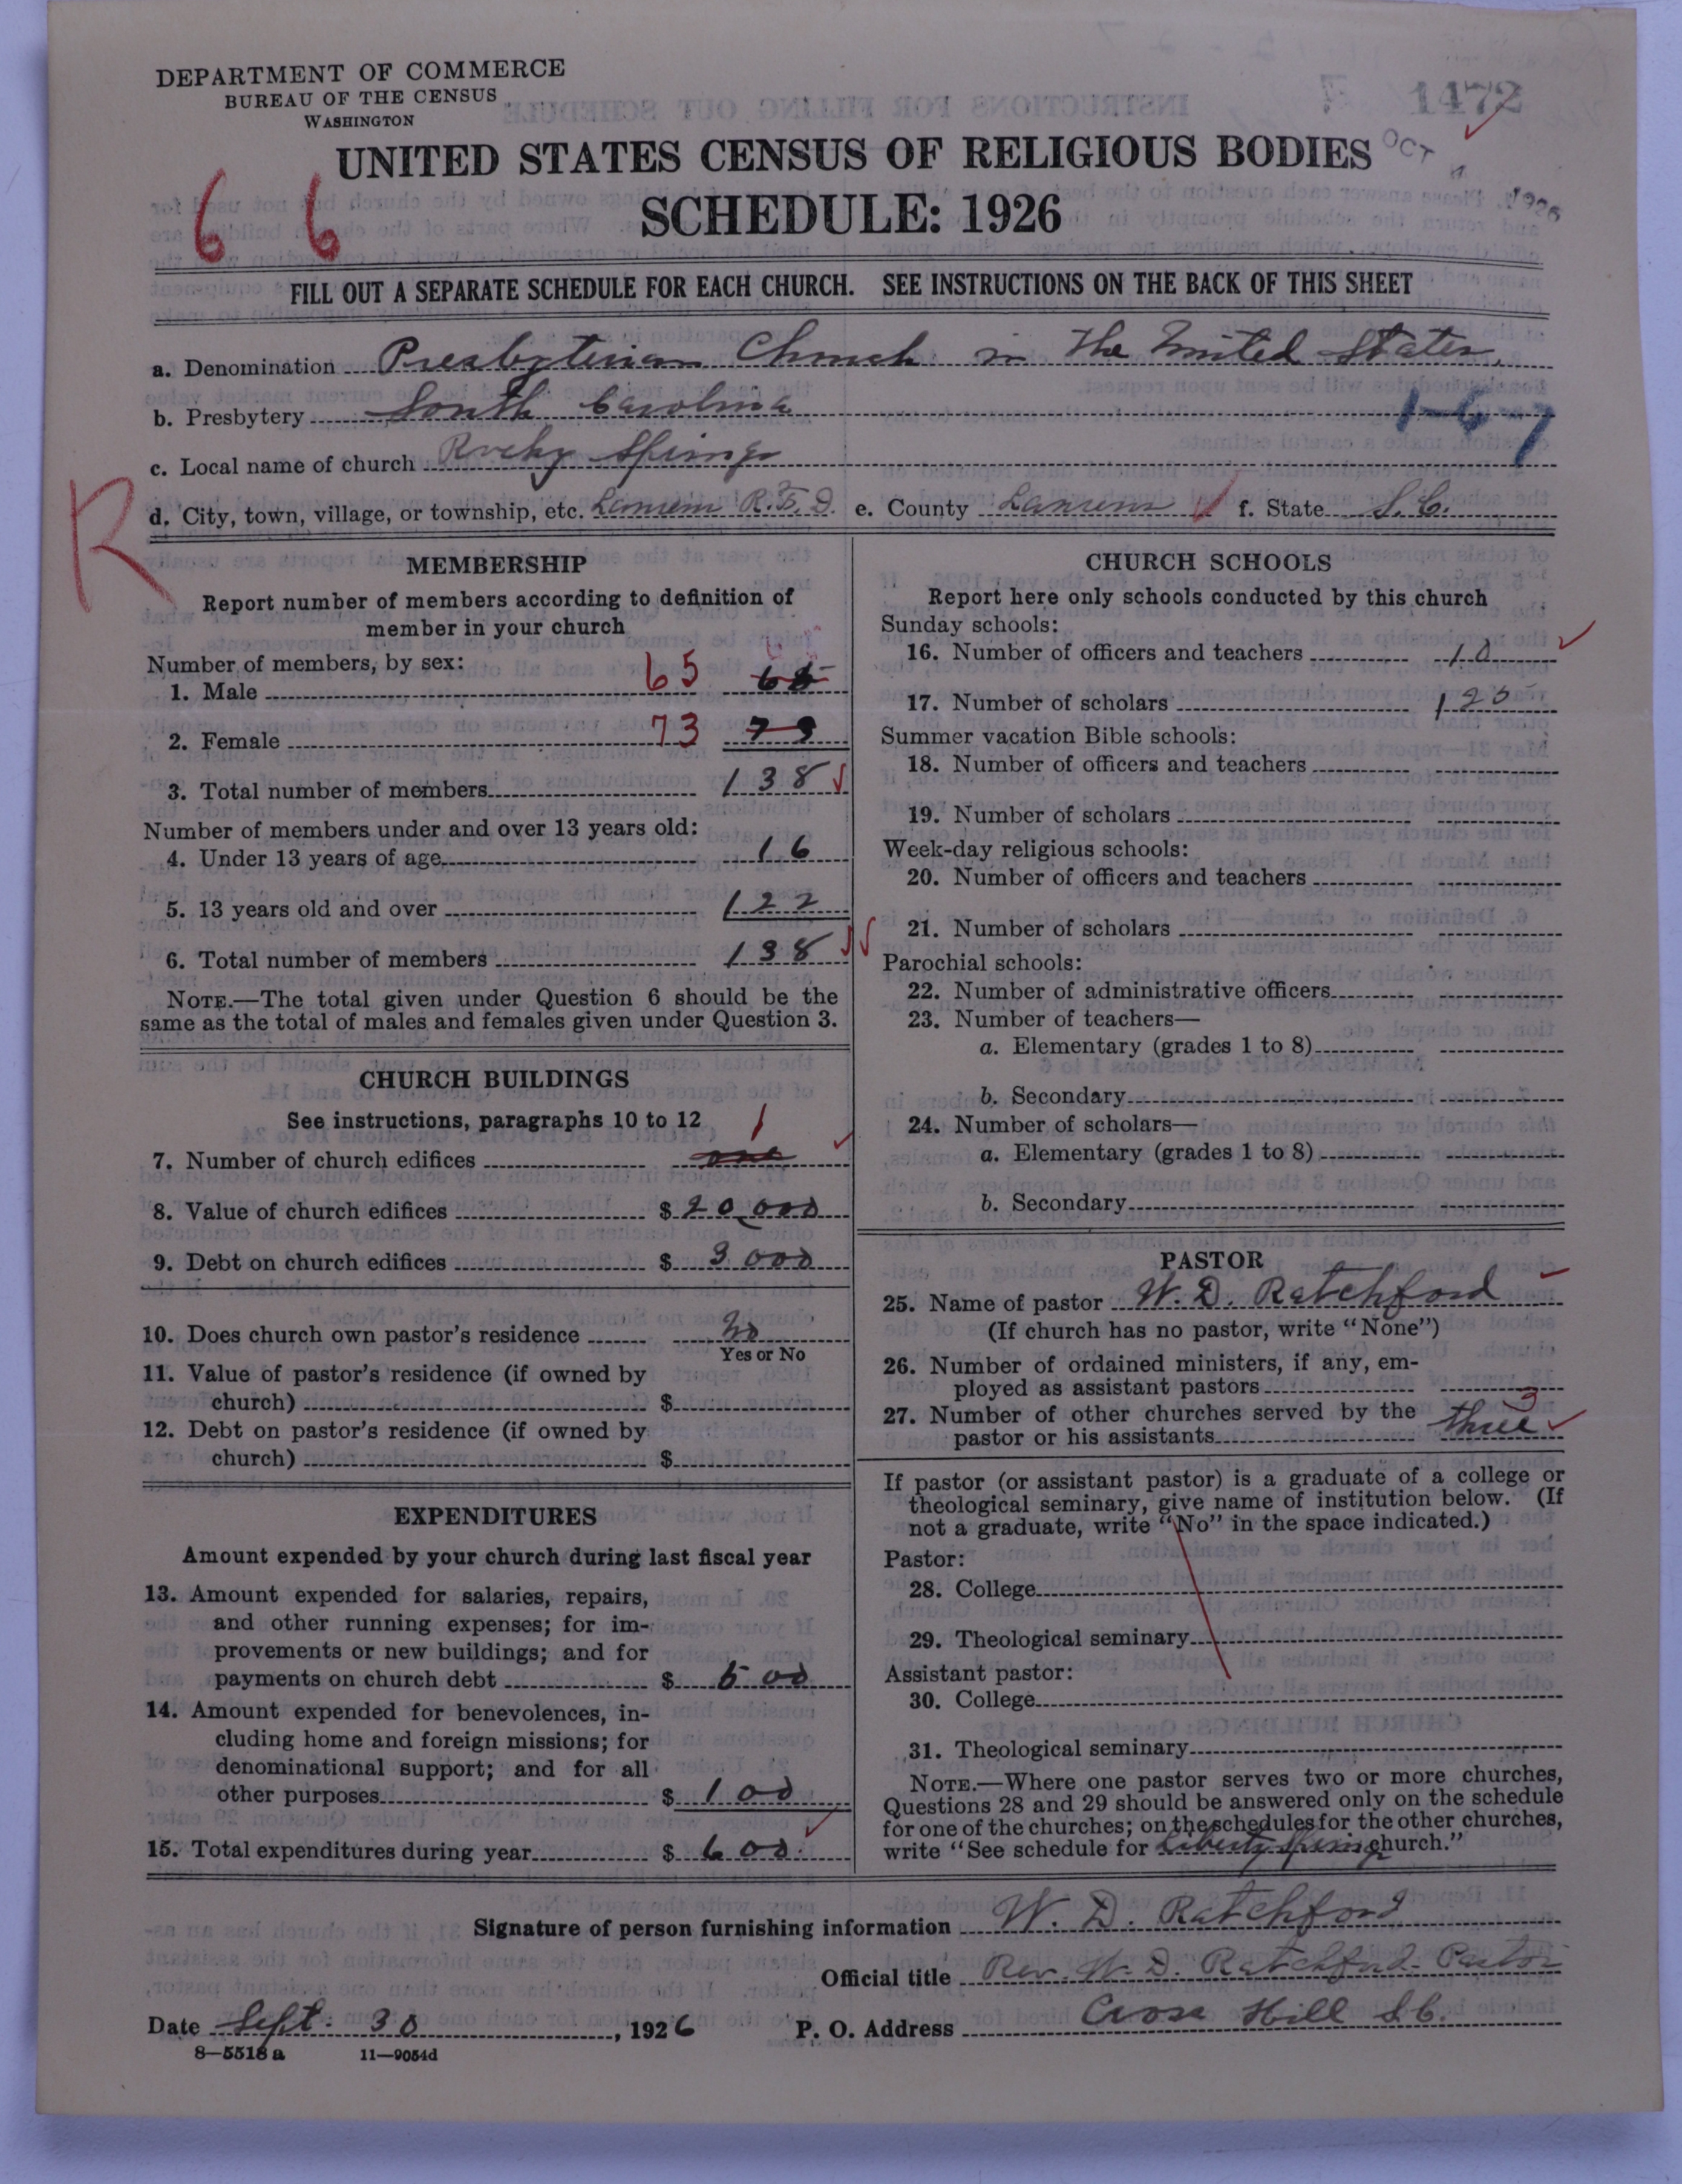 DEPARTMENT OF COMMERCE
BUREAU OF THE CENSUS
WASHINGTON
1472
OCT 4 1926
UNITED STATES CENSUS OF RELIGIOUS BODIES
SCHEDULE: 1926
6 6
FILL OUT A SEPARATE SCHEDULE FOR EACH CHURCH. SEE INSTRUCTIONS ON THE BACK OF THIS SHEET
a. Denomination Presbyterian Church in The United States.
b. Presbytery South Carolina
1-6-7
c. Local name of church Rocky Springs
R
d. City, town, village, or township, etc. Laurens R.F.D. e. County Laurens f. State S.C.
MEMBERSHIP
Report number of members according to definition of
member in your church
Number of members, by sex:
1. Male 65
2. Female 73
3. Total number of members 138
Number of members under and over 13 years old:
4. Under 13 years of age 16
5. 13 years old and over 122
6. Total number of members 138
NOTE.—The total given under Question 6 should be the
same as the total of males and females given under Question 3.
CHURCH BUILDINGS
See instructions, paragraphs 10 to 12
7. Number of church edifices one 1
8. Value of church edifices $ 20,000
9. Debt on church edifices $ 3000
10. Does church own pastor's residence No
Yes or No
11. Value of pastor's residence (if owned by
church) $
12. Debt on pastor's residence (if owned by
church) $
EXPENDITURES
Amount expended by your church during last fiscal year
13. Amount expended for salaries, repairs,
and other running expenses; for im-
provements or new buildings; and for
payments on church debt $ 500
14. Amount expended for benevolences, in-
cluding home and foreign missions; for
denominational support; and for all
other purposes $ 100
15. Total expenditures during year $ 600.
CHURCH SCHOOLS
Report here only schools conducted by this church
Sunday schools:
16. Number of officers and teachers 10
17. Number of scholars 120
Summer vacation Bible schools:
18. Number of officers and teachers
19. Number of scholars
Week-day religious schools:
20. Number of officers and teachers
21. Number of scholars
Parochial schools:
22. Number of administrative officers
23. Number of teachers—
a. Elementary (grades 1 to 8)
b. Secondary
24. Number of scholars—
a. Elementary (grades 1 to 8)
b. Secondary
PASTOR
25. Name of pastor W. D. Ratchford
(If church has no pastor, write "None")
26. Number of ordained ministers, if any, em-
ployed as assistant pastors
27. Number of other churches served by the
pastor or his assistants three 3
If pastor (or assistant pastor) is a graduate of a college or
theological seminary, give name of institution below. (If
not a graduate, write "No" in the space indicated.)
Pastor:
28. College
29. Theological seminary
Assistant pastor:
30. College
31. Theological seminary
NOTE.—Where one pastor serves two or more churches,
Questions 28 and 29 should be answered only on the schedule
for one of the churches; on the schedules for the other churches,
write "See schedule for Liberty Spring church."
Signature of person furnishing information W. D. Ratchford
Official title Rev. W. D. Ratchford - Pastor
Date Sept. 30, 1926 P. O. Address Cross Hill S.C.
8—5518 a 11—9054d